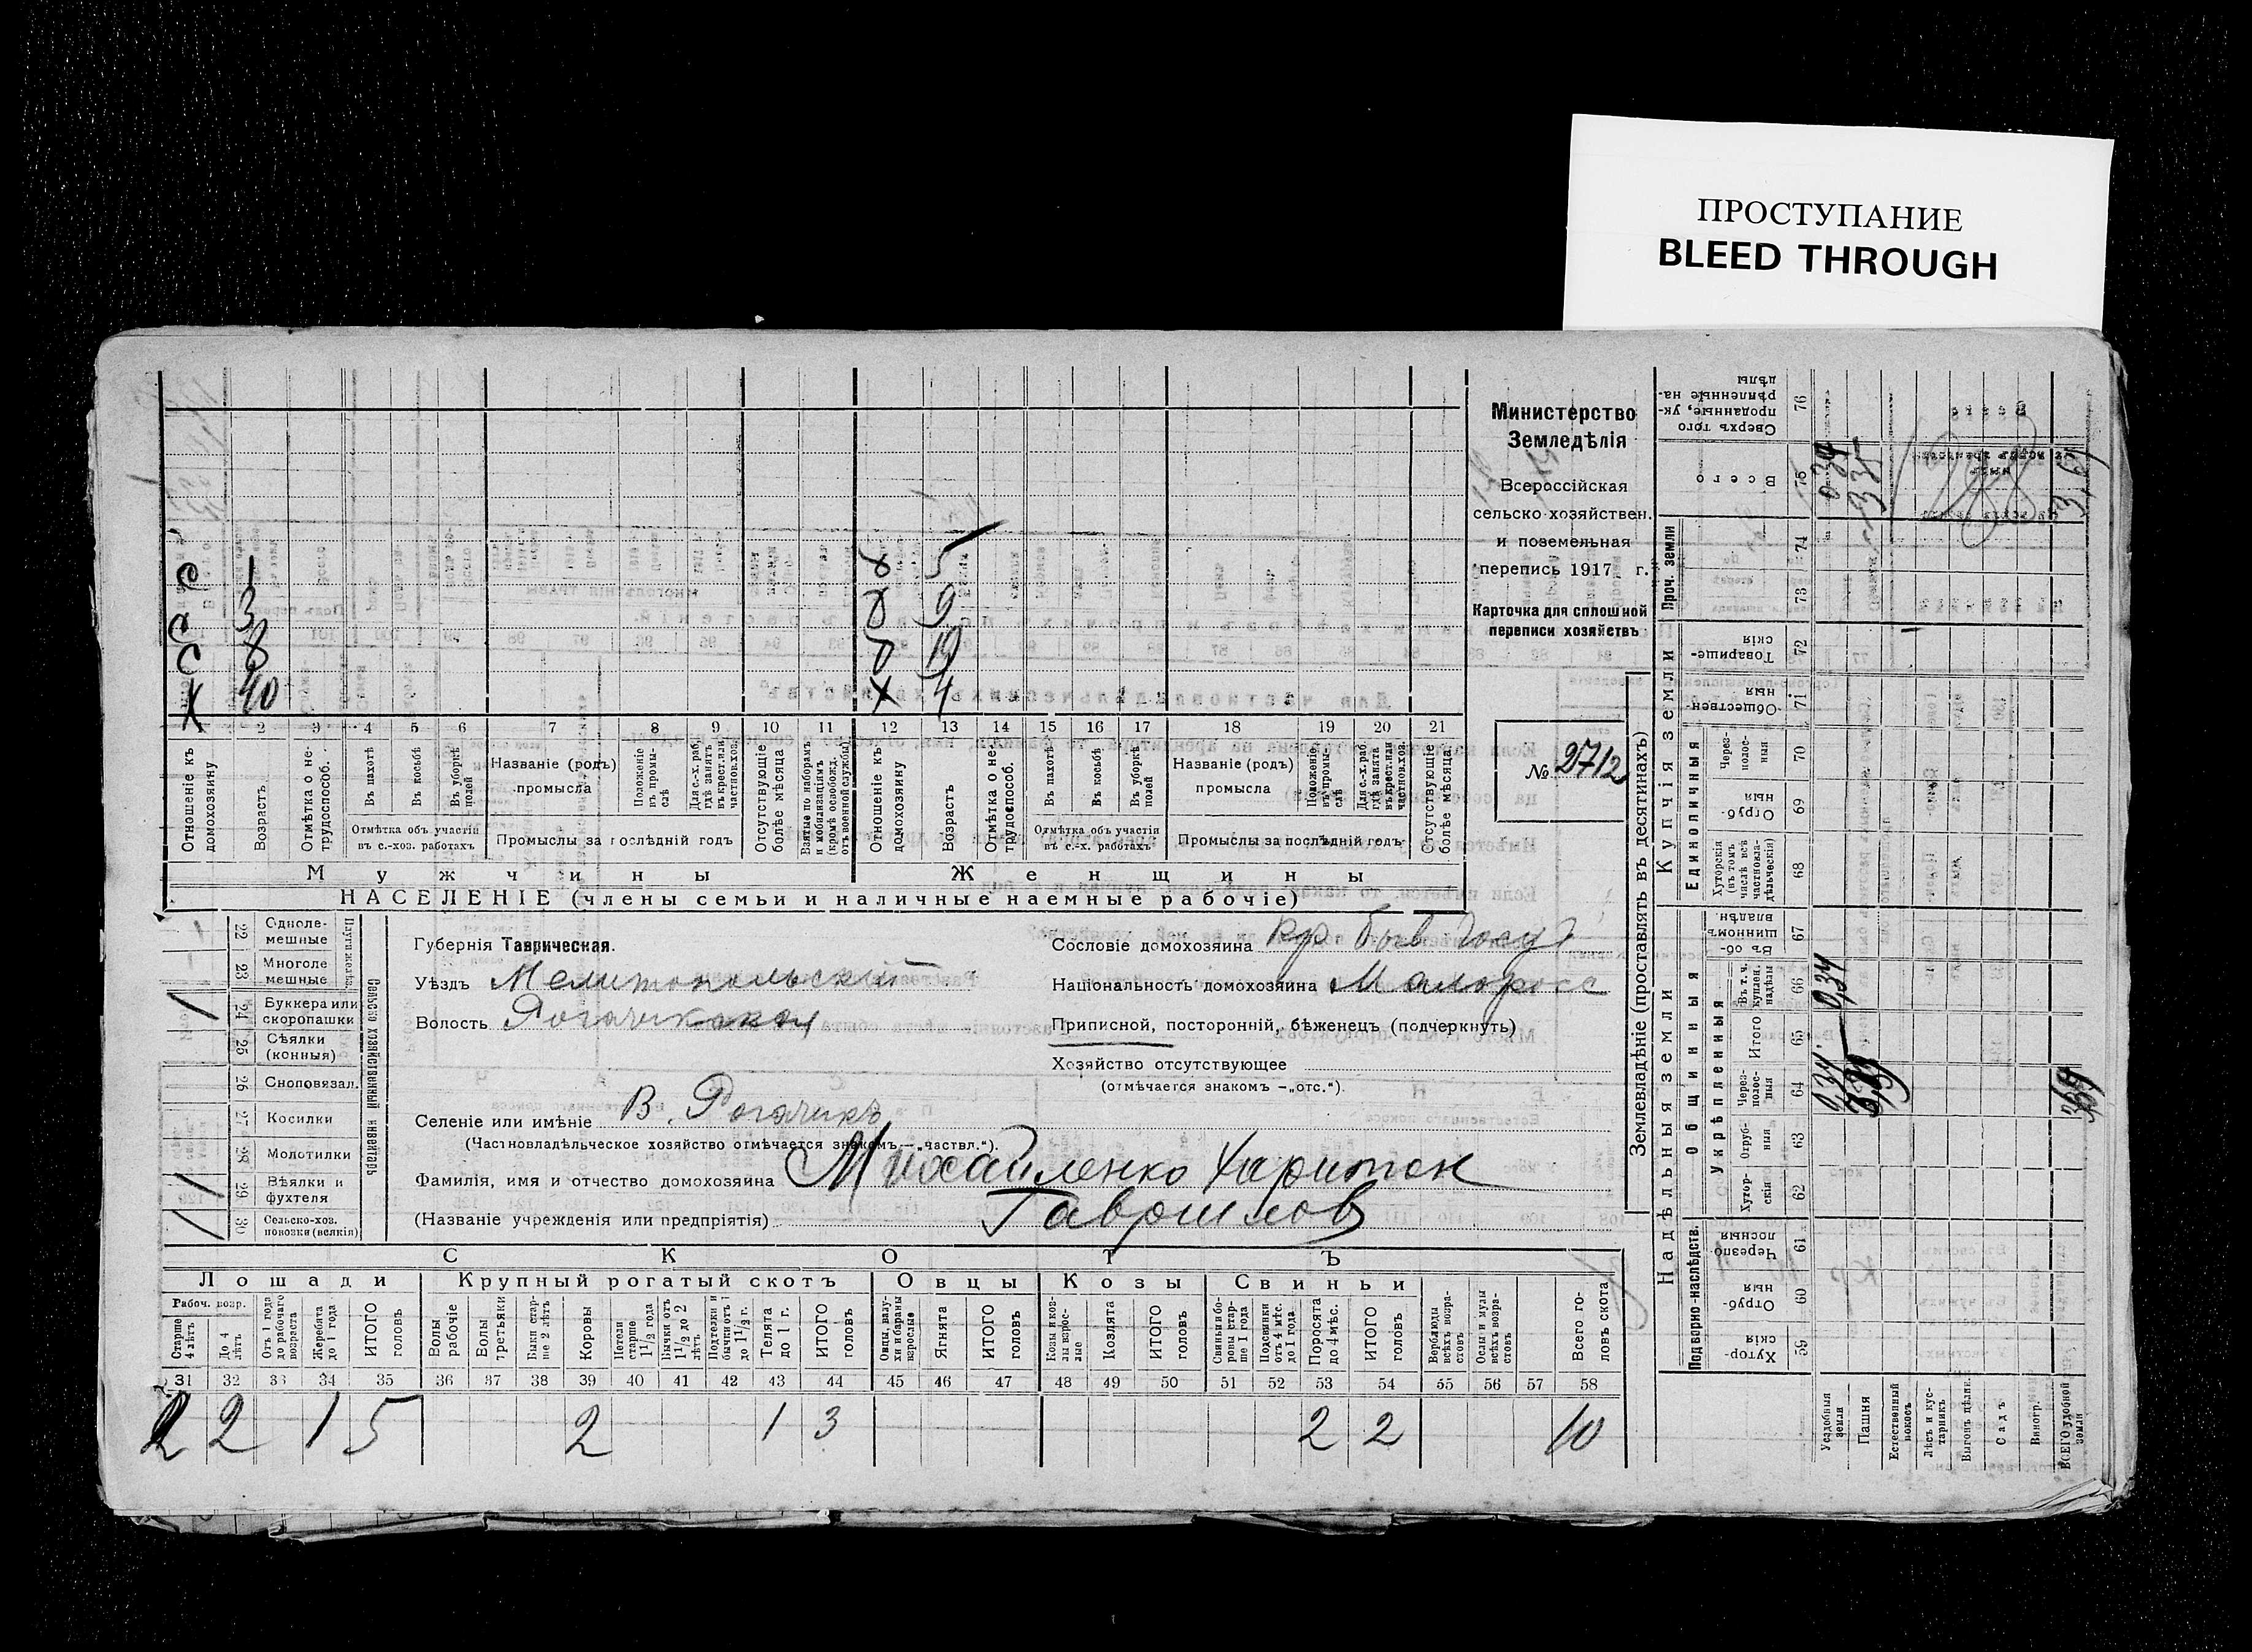 ПРОСТУПАНИЕ
BLEED THROUGH
Министерство
Земледѣлія
Всероссійская
сельско-хозяйствен.
и поземельная
перепись 1917 г.
Карточка для сплошной
переписи хозяйствъ
№ 2712
С 1
С 3
С 8
Х 40
5
9
Х 4
1 2 3 4 5 6 7 8 9 10 11 12 13 14 15 16 17 18 19 20 21
Отношеніе къ домохозяину
Возрастъ
Отмѣтка о нетрудоспособ.
Въ пахотѣ
Въ косьбѣ
Въ уборкѣ полей
Отмѣтка объ участіи въ с.-хоз. работахъ
Названіе (родъ) промысла
Положеніе въ промыслѣ
Для с.-х. раб. гдѣ занятъ въ крест. или частнов. хоз.
Промыслы за послѣдній годъ
Отсутствующіе болѣе мѣсяца
Взятые по наборамъ и мобилизаціямъ (кромѣ освобожд. отъ военной службы)
Отношеніе къ домохозяину
Возрастъ
Отмѣтка о нетрудоспособ.
Въ пахотѣ
Въ косьбѣ
Въ уборкѣ полей
Отмѣтка объ участіи въ с.-х. работахъ
Названіе (родъ) промысла
Положеніе въ промыслѣ
Для с.-х. раб. гдѣ занята въ крест. или частнов. хоз.
Промыслы за послѣдній годъ
Отсутствующіе болѣе мѣсяца
Мужчины Женщины
НАСЕЛЕНІЕ (члены семьи и наличные наемные рабочіе)
Сельско-хозяйственный инвентарь
Плуги желѣз.
22 Однолемешные
23 Многолемешные
24 Буккера или скоропашки
25 Сѣялки (конныя)
26 Сноповязал.
27 Косилки
28 Молотилки
29 Вѣялки и фухтеля
30 Сельско-хоз. повозки (всякія)
Губернія Таврическая.
Уѣздъ Мелитопольскій
Волость Рогачикская
Селеніе или имѣніе В. Рогачикъ
(Частновладѣльческое хозяйство отмѣчается знакомъ—„частвл.“).
Сословіе домохозяина кр. быв
Національность домохозяина Малоросс
Приписной, посторонній, бѣженецъ (подчеркнуть)
Хозяйство отсутствующее
(отмѣчается знакомъ —„отс.“).
Фамилія, имя и отчество домохозяина Михайленко Харитон
(Названіе учрежденія или предпріятія) Гаврилов
СКОТЪ
Лошади Крупный рогатый скотъ Овцы Козы Свиньи
Рабоч. возр.
Старше 4 лѣтъ
До 4 лѣтъ
Отъ 1 года до рабочаго возраста
Жеребята до 1 года
ИТОГО головъ
Волы рабочіе
Волы третьяки
Быки старше 2 лѣтъ
Коровы
Нетели старше 1 1/2 года
Бычки отъ 1 1/2 до 2 лѣтъ
Подтелки и бычки отъ 1 до 1 1/2 г.
Телята до 1 г.
ИТОГО головъ
Овцы, валухи и бараны взрослые
Ягнята
ИТОГО головъ
Козы и козлы взрослые
Козлята
ИТОГО головъ
Свиньи и боровы старше 1 года
Подсвинки отъ 4 мѣс. до 1 года
Поросята до 4 мѣс.
ИТОГО головъ
Верблюды всѣхъ возрастовъ
Ослы и мулы всѣхъ возрастовъ
Всего головъ скота
31 32 33 34 35 36 37 38 39 40 41 42 43 44 45 46 47 48 49 50 51 52 53 54 55 56 57 58
2 2 1 5 2 1 3 2 2 10
Землевладѣніе (проставлять въ десятинахъ)
Надѣльныя земли Купчія земли Проч. земли
Подворно-наслѣдств.
Общинныя
Укрѣпленныя
Единоличныя
59 Хуторскія
60 Отрубныя
61 Черезполосныя
62 Хуторскія
63 Отрубныя
64 Черезполосныя
65 Итого
66 Въ т. ч. куплен. надѣлы
67 Въ общинномъ владѣн.
68 Хуторскія (въ томъ числѣ всѣ частновладѣльческія)
69 Отрубныя
70 Черезполосныя
71 Общественныя
72 Товарищескія
73
74
75 Всего
76 Сверхъ того проданные, укрѣпленные надѣлы
Усадебныя земли 0,34 0,34 0,34
Пашня 335
Естественный покосъ
Лѣсъ и кустарникъ
Выгонъ цѣлин.
Садъ
Виногр.
ВСЕГО удобной земли 369 3,69